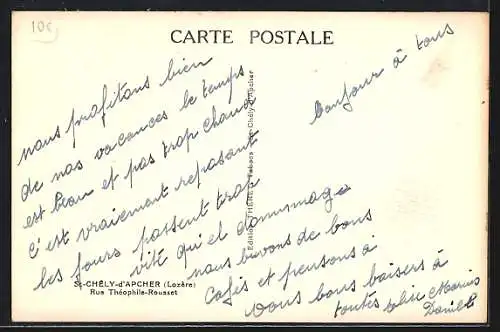 10€
CARTE POSTALE
Bonjour à tous
nous profitons bien
de nos vacances le temps
est beau et pas trop chaud
c'est vraiement reposant
les jours passent trop
vite qu'el dommage
nous buvons de bons
cafés et pensons à
vous bons baisers à
toutes
Marius
Daniel
Edition Tabacs St-Chély-d'Apcher
St-CHÉLY-d'APCHER (Lozère)
Rue Théophile-Roussel